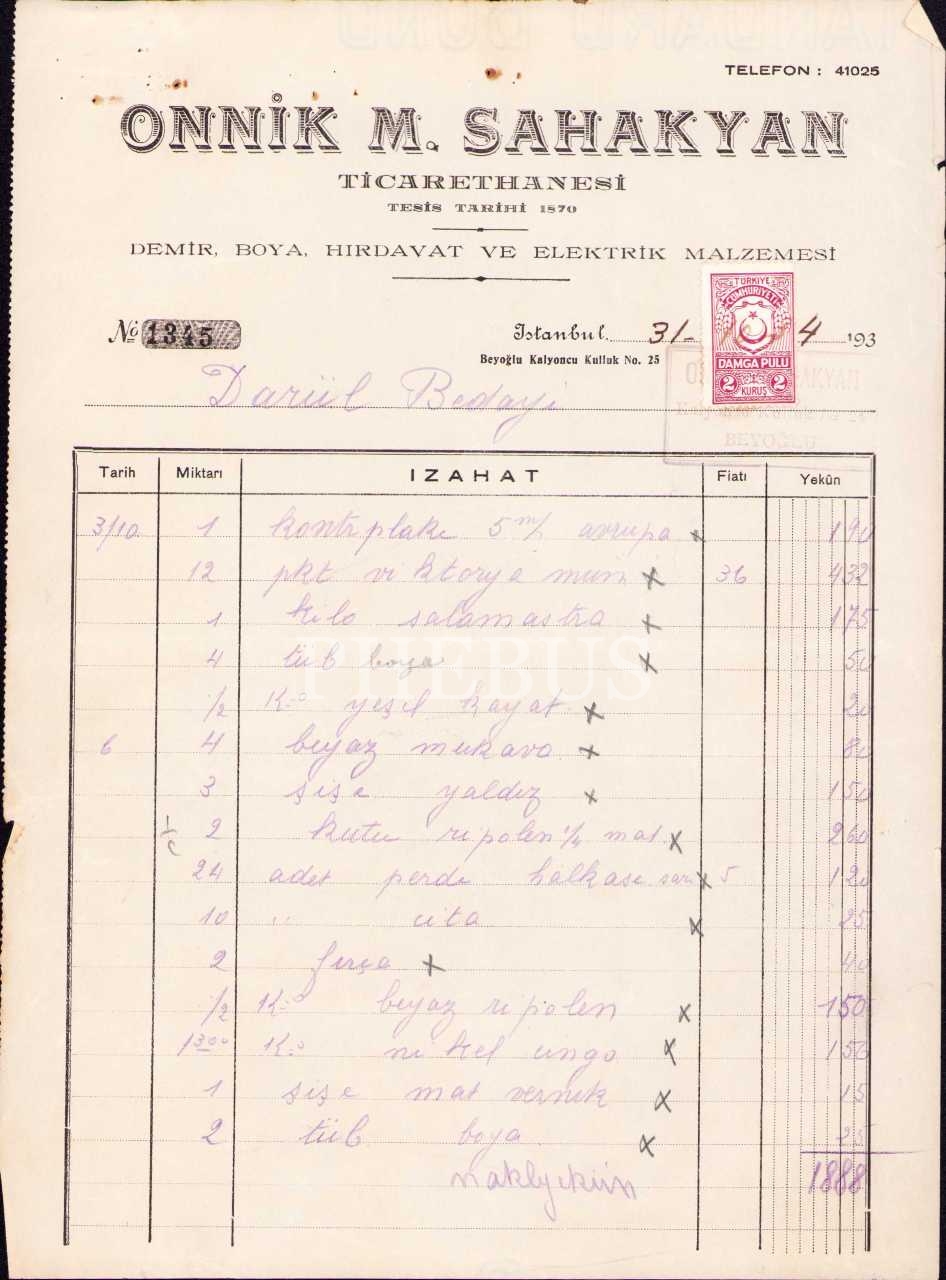 TELEFON : 41025
ONNİK M. SAHAKYAN
TİCARETHANESİ
TESİS TARİHİ 1870
DEMİR, BOYA, HIRDAVAT VE ELEKTRİK MALZEMESİ
TÜRKİYE
CUMHURİYETİ
No 1345 Istanbul. 31- 4 193
Beyoğlu Kalyoncu Kulluk No. 25
DAMGA PULU
2 KURUŞ 2
SAHAKYAN
BEYOĞLU
Darül Bedayi
Tarih Miktarı IZAHAT Fiatı Yekûn
3/10 1 kontrplake 5 m/ avrupa x 190
12 pkt viktorya mum x 36 432
1 kilo salamastra x 175
4 tüb boya x 50
PHEBUS
1/2 K-o yeşil x 20
6 4 beyaz mukava x 80
3 şişe yaldız x 150
2 kutu ripolen 1/4 mat x 260
24 adet perde halkası sarı x 5 120
10 " çıta x 25
2 fırça x 40
1/2 K-o beyaz ripolen x 150
1300 K-o nikel ungo x 156
1 şişe mat vernik x 15
2 tüb boya x 25
naklyekün 1888